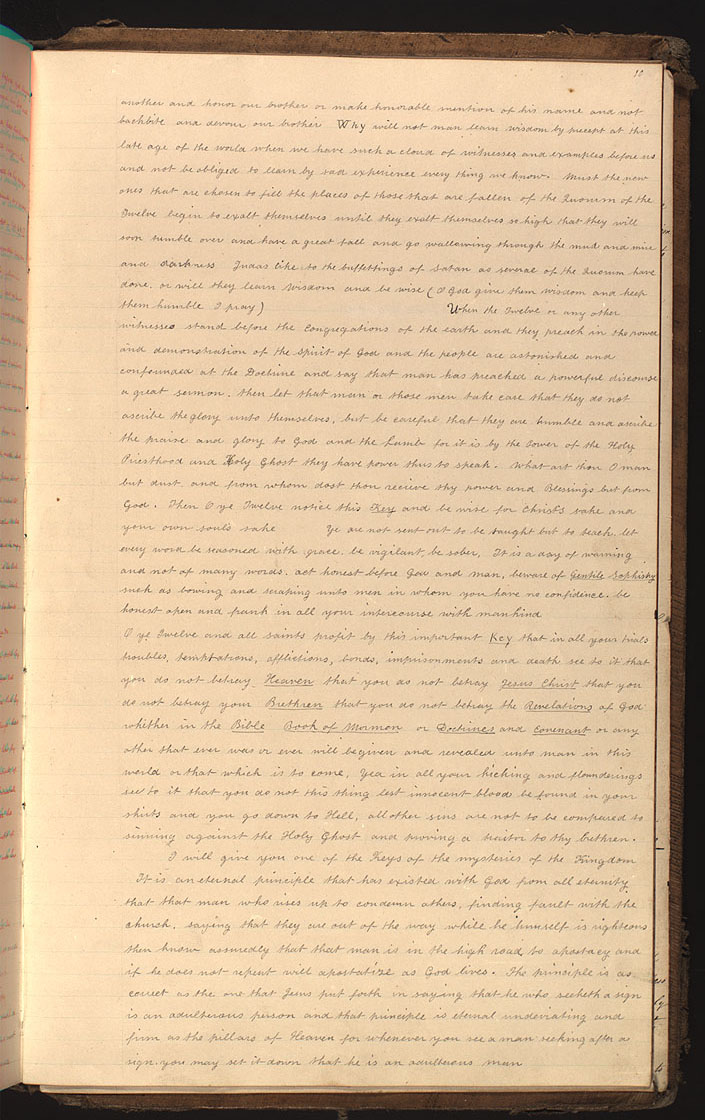 10
another and honor our brother or make honorable mention of his name and not
backbite and devour our brother Why will not man learn wisdom by precept at this
late age of the world when we have such a cloud of witnesses and examples before us
and not be obliged to learn by sad experience every thing we know. Must the new
ones that are chosen to fill the places of those that are fallen of the Quorum of the
Twelve begin to exalt themselves until they exalt themselves so high that they will
soon tumble over and have a great fall and go wallowing through the mud and mire
and darkness Judas like to the buffettings of Satan as several of the Quorum have
done, or will they learn Wisdom and be wise (O God give them wisdom and keep
them humble I pray) When the Twelve or any other
witnesses stand before the Congregations of the earth and they preach in the power
and demonstration of the Spirit of God and the people are astonished and
confounded at the Doctrine and say that man has preached a powerful discourse
a great sermon, then let that man or those men take care that they do not
ascribe the glory unto themselves, but be careful that they are humble and ascribe
the praise and glory to God and the Lamb for it is by the Power of the Holy
Priesthood and Holy Ghost they have power thus to speak. What art thou O man
but dust and from whom dost thou receive thy power and Blessings but from
God. Then O ye Twelve notice this Key and be wise for Christs sake and
your own souls sake Ye are not sent out to be taught but to teach, let
every word be seasoned with grace. be vigilant, be sober, It is a day of warning
and not of many words. act honest before God and man, beware of Gentile Sophistry
such as bowing and scraping unto men in whom you have no confidence. be
honest open and frank in all your intercourse with mankind
O ye Twelve and all saints profit by this important Key that in all your trials
troubles, temptations, afflictions, bonds, imprisonments and death see to it that
you do not betray Heaven that you do not betray Jesus Christ that you
do not betray your Brethren that you do not betray the Revelations of God
whether in the Bible Book of Mormon or Doctrines and Covenant or any
other that ever was or ever will be given and revealed unto man in this
world or that which is to come, Yea in all your kicking and flounderings
see to it that you do not this thing lest innocent blood be found in your
skirts and you go down to Hell, all other sins are not to be compared to
sinning against the Holy Ghost and proving a traitor to thy bethren.
I will give you one of the Keys of the mysteries of the Kingdom
It is an eternal principle that has existed with God from all eternity
that that man who rises up to condemn others, finding fault with the
church, saying that they are out of the way while he himself is righteous
then know assuredly that that man is in the high road to apostacy and
if he does not repent will apostatize as God lives. The principle is as
correct as the one that Jesus put forth in saying that he who seeketh a sign
is an adulterous person and that principle is eternal undeviating and
firm as the pillars of Heaven for whenever you see a man seeking after a
sign. you may set it down that he is an adulterous man